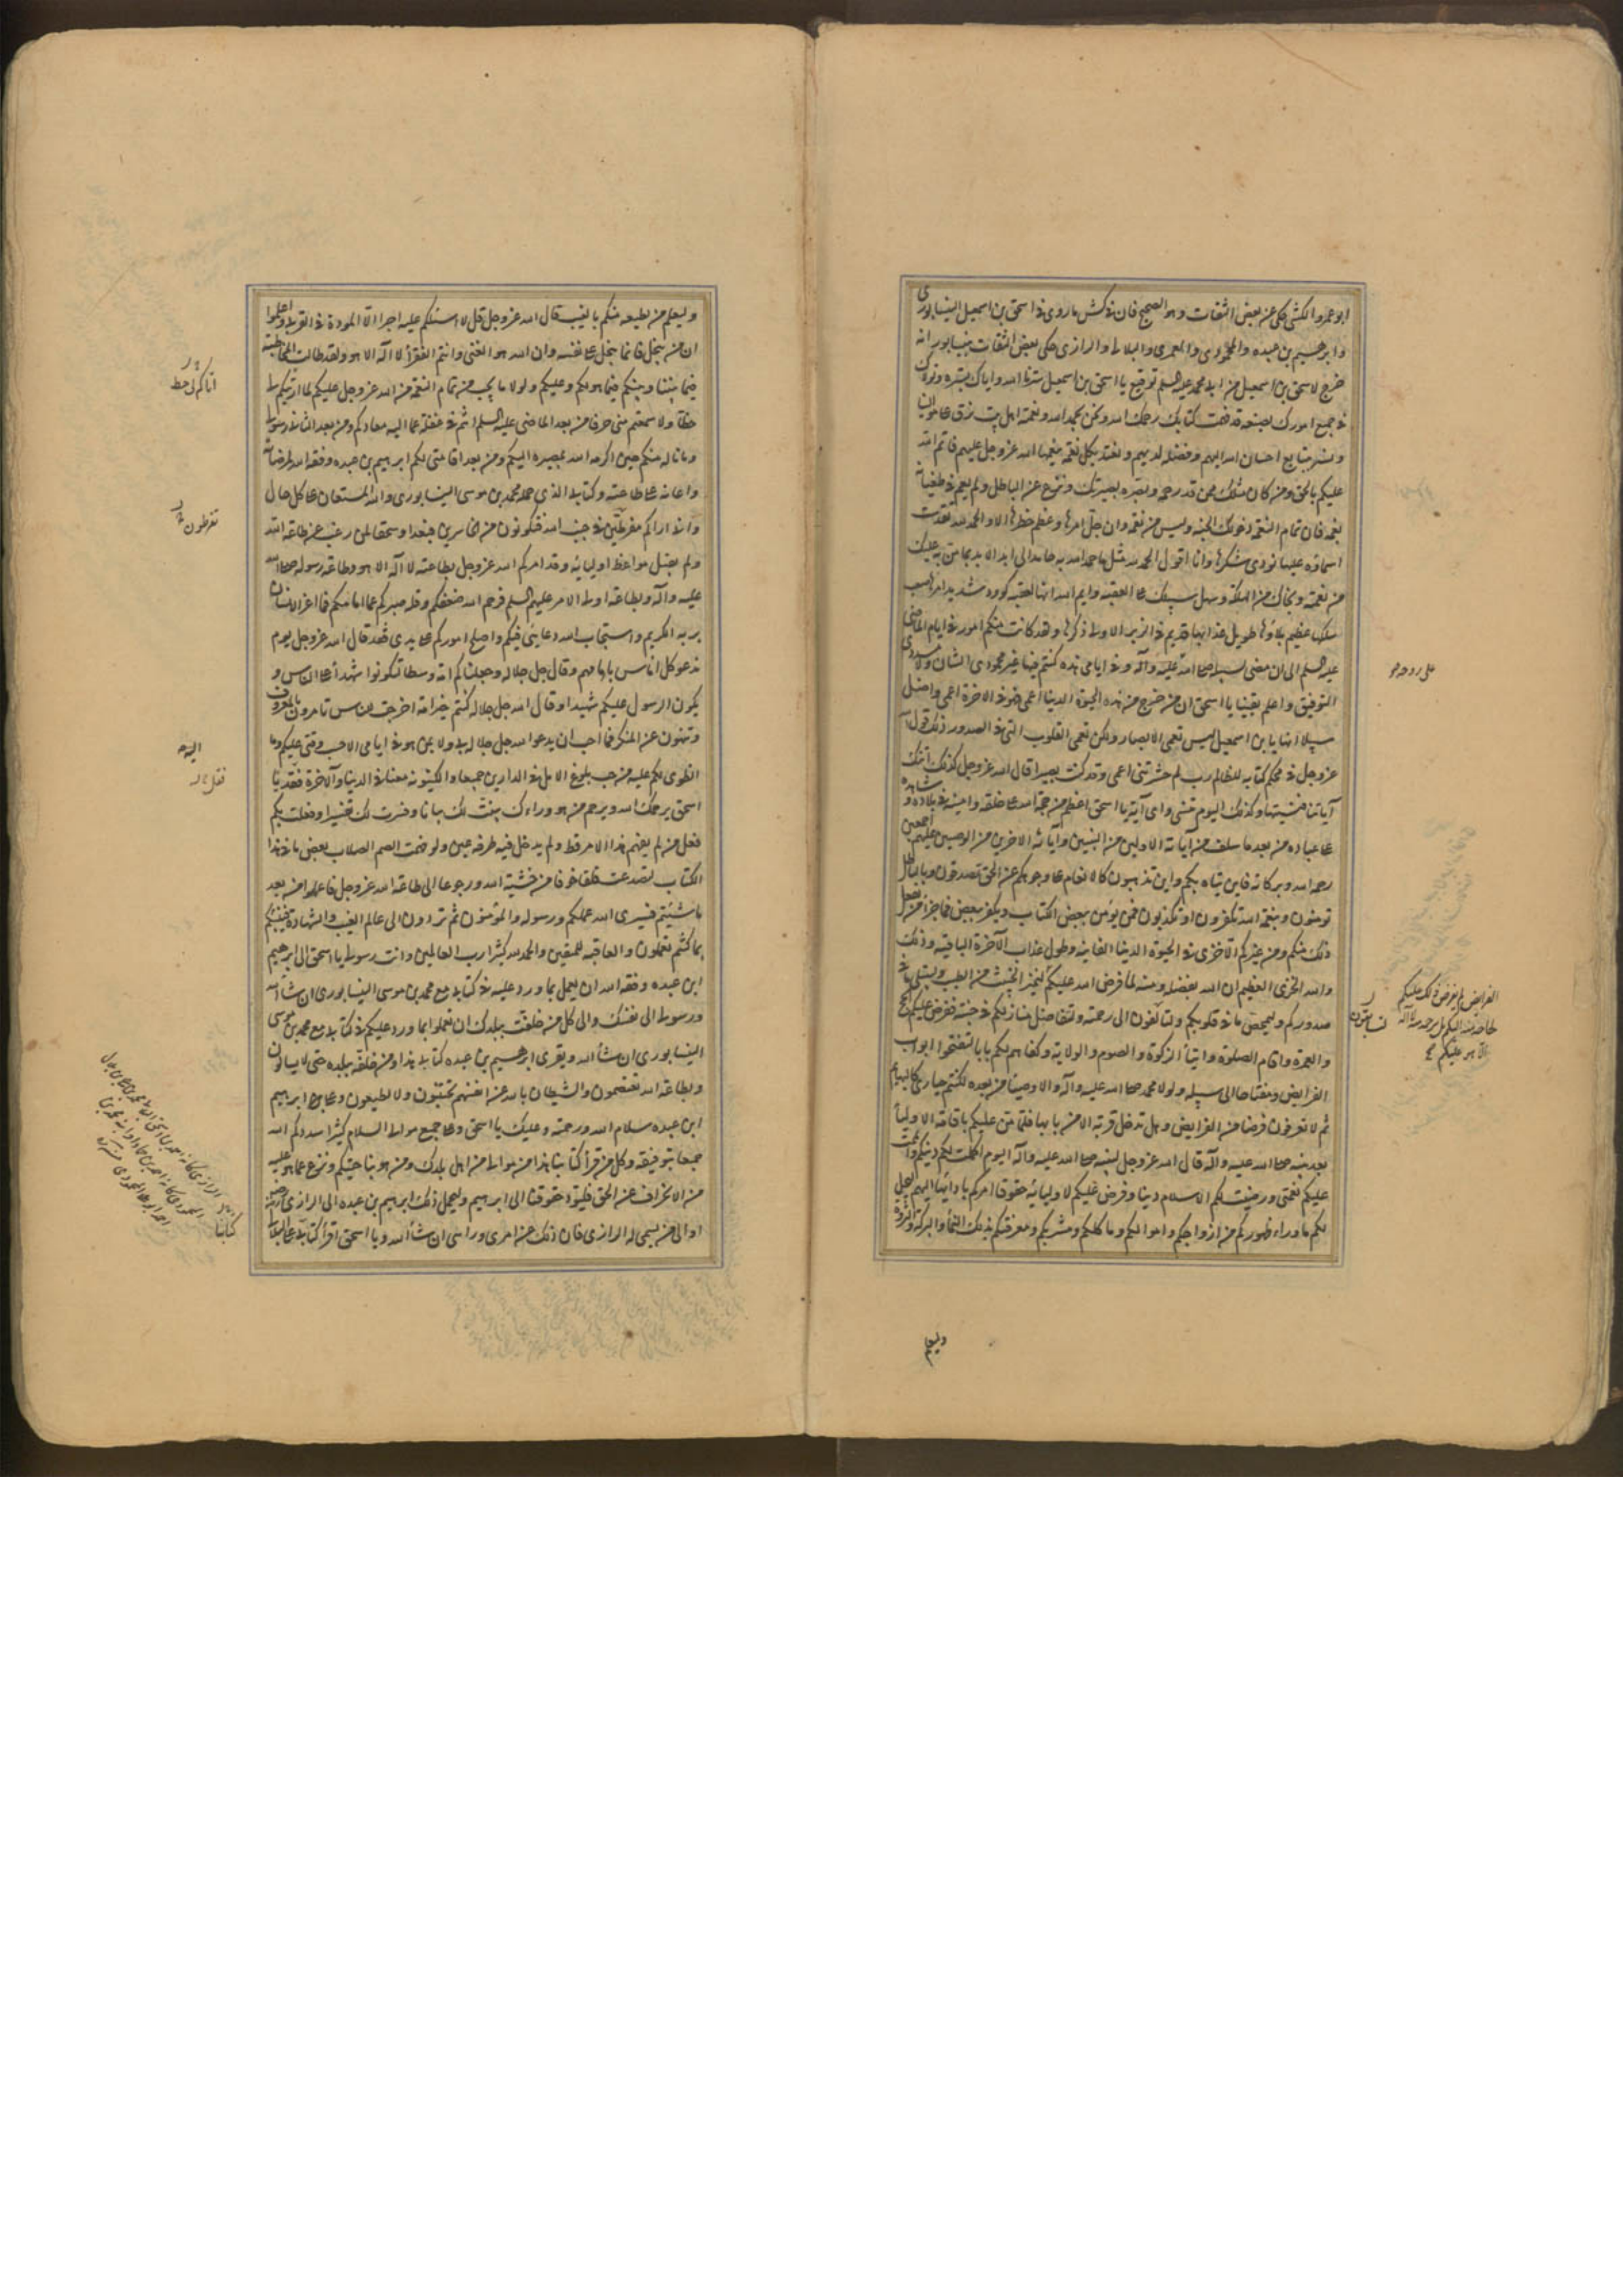 ابو عمرو الكشى حكى عن بعض الثقات وهو الصحيح فان فى كش ما روى فى اسحق بن اسمعيل النيسابورى
وابرهيم بن عبده والمحمودى والعمرى والبلالى والرازى حكى بعض الثقات بنيسابور انه
خرج لاسحق بن اسمعيل من ابى محمد عليه السلم توقيع يا اسحق بن اسمعيل سترنا الله واياك بستره وتولاك
فى جميع امورك بصنعه قد فهمت كتابك رحمك الله ونحن بحمد الله ونعمته اهل بيت نرق على موالينا
ونسر بتتابع احسان الله اليهم وفضله لديهم ونعتد بكل نعمة ينعمها الله عز وجل عليهم فاتم الله
عليكم بالحق ومن كان مثلك ممن قد رحمه وبصره بصيرتك ونزع عن الباطل ولم يعم فى طغيانه
نعمه فان تمام النعمة دخولك الجنة وليس من نعمة وان جل امرها وعظم خطرها الا والحمد لله تقدست
اسماؤه عليها تؤدى شكرها وانا اقول الحمد لله مثل ما حمد الله به حامد الى ابد الابد بما من به عليك
من نعمته ونجاك من الهلكة وسهل سبيلك على العقبة وايم الله انها لعقبة كؤود شديد امرها صعب
مسلكها عظيم بلاؤها طويل عذابها قديم فى الزبر الاولى ذكرها ولقد كانت منكم امور فى ايام الماضى
عليه السلم الى ان مضى لسبيله صلى الله عليه وآله وفى ايامى هذه كنتم فيها غير محمودى الشان ولا مسددى
التوفيق واعلم يقينا يا اسحق ان من خرج من هذه الحيوة الدنيا اعمى فهو فى الاخرة اعمى واضل
سبيلا انها يا بن اسمعيل ليس تعمى الابصار ولكن تعمى القلوب التى فى الصدور وذلك قول الله
عز وجل فى محكم كتابه للظالم رب لم حشرتنى اعمى وقد كنت بصيرا قال الله عز وجل كذلك اتتك
آياتنا فنسيتها وكذلك اليوم تنسى واى آية يا اسحق اعظم من حجة الله على خلقه وامينه فى بلاده وشاهده
على عباده من بعد ما سلف من آبائه الاولين من النبيين وآبائه الاخرين من الوصيين عليهم اجمعين
رحمة الله وبركاته فاين يتاه بكم واين تذهبون كالانعام على وجوهكم عن الحق تصدفون وبالباطل
تؤمنون وبنعمة الله تكفرون او تكذبون فمن يؤمن ببعض الكتاب ويكفر ببعض فما جزاء من يفعل
ذلك منكم ومن غيركم الا خزى فى الحيوة الدنيا الفانية وطول عذاب الآخرة الباقية وذلك
والله الخزى العظيم ان الله بفضله ومنه لما فرض الله عليكم ليميز الخبيث من الطيب وليبتلى ما فى
صدوركم وليمحص ما فى قلوبكم ولتآلفون الى رحمته وتتفاضل منازلكم فى جنته ففرض عليكم الحج
والعمرة واقام الصلوة وايتاء الزكوة والصوم والولاية وكفاهم لكم بابا لتفتحوا ابواب
الفرايض ومفتاحا الى سبيله ولولا محمد صلى الله عليه وآله والاوصياء من بعده لكنتم حيارى كالبهايم
لا تعرفون فرضا من الفرايض وهل تدخل قرية الا من بابها فلما من عليكم باقامة الاولياء
بعد نبيه صلى الله عليه وآله قال الله عز وجل لنبيه صلى الله عليه وآله اليوم اكملت لكم دينكم واتممت
عليكم نعمتى ورضيت لكم الاسلام دينا وفرض عليكم لاوليائه حقوقا امركم بادائها اليهم ليحل
لكم ما وراء ظهوركم من ازواجكم واموالكم ومآكلكم ومشربكم ومعرفتكم بذلك النماء والبركة والثروة
وليعلم
وليعلم من يطيعه منكم بالغيب قال الله عز وجل قل لا اسئلكم عليه اجرا الا المودة فى القربى واعلموا
ان من يبخل فانما يبخل على نفسه وان الله هو الغنى وانتم الفقراء لا اله الا هو ولقد طالت المخاطبة
فيما بيننا وبينكم فيما هو لكم وعليكم ولولا ما يجب من تمام النعمة من الله عز وجل عليكم لما اريتكم لى
خطا ولا سمعتم منى حرفا من بعد الماضى عليه السلم انتم فى غفلة عما اليه معادكم ومن بعد الثانى رسولى
وما ناله منكم حين اكرمه الله بمصيره اليكم ومن بعد اقامتى لكم ابرهيم بن عبده وفقه الله لمرضاته
واعانه على طاعته وكتابى الذى حمله محمد بن موسى النيسابورى والله المستعان على كل حال
وانى اراكم مفرطين فى جنب الله فتكونون من الخاسرين فبعدا وسحقا لمن رغب عن طاعة الله
ولم يقبل مواعظ اوليائه وقد امركم الله عز وجل بطاعته لا اله الا هو وطاعة رسوله صلى الله
عليه وآله وبطاعة اولى الامر عليهم السلم فرحم الله ضعفكم وقلة صبركم عما امامكم فما اغر الانسان
بربه الكريم واستجاب الله دعائى فيكم واصلح اموركم على يدى فقد قال الله عز وجل يوم
ندعو كل اناس بامامهم وقال جل جلاله وجعلناكم امة وسطا لتكونوا شهداء على الناس و
يكون الرسول عليكم شهيدا وقال الله جل جلاله كنتم خير امة اخرجت للناس تامرون بالمعروف
وتنهون عن المنكر فما احب ان يدعو الله جل جلاله بى ولا بمن هو فى ايامى الا حسب رقتى عليكم وما
انطوى لكم عليه من حب بلوغ الامل فى الدارين جميعا والكينونة معنا فى الدنيا والآخرة فقد يا
اسحق يرحمك الله ويرحم من هو وراءك بينت لك بيانا وفسرت لك تفسيرا وفعلت بكم
فعل من لم يفهم هذا الامر قط ولم يدخل فيه طرفة عين ولو فهمت الصم الصلاب بعض ما فى هذا
الكتاب لتصدعت قلقا خوفا من خشية الله ورجوعا الى طاعة الله عز وجل فاعملوا من بعد
ما شئتم فسيرى الله عملكم ورسوله والمؤمنون ثم تردون الى عالم الغيب والشهادة فينبئكم
بما كنتم تعملون والعاقبة للمتقين والحمد لله كثيرا رب العالمين وانت رسولى يا اسحق الى ابرهيم
ابن عبده وفقه الله ان يعمل بما ورد عليه فى كتابى مع محمد بن موسى النيسابورى ان شاء الله
ورسولى الى نفسك والى كل من خلفت ببلدك ان تعملوا بما ورد عليكم فى كتابى مع محمد بن موسى
النيسابورى ان شاء الله ويقرى ابرهيم بن عبده كتابى هذا ومن خلفه ببلده حتى لا يسالون
وبطاعة الله تعتصمون والشيطان بالله عن انفسهم تجتنبون ولا تطيعون وعلى ابرهيم
ابن عبده سلام الله ورحمته وعليك يا اسحق وعلى جميع موالى السلام كثيرا سددكم الله
جميعا بتوفيقه وكل من قرأ كتابنا هذا من موالى من اهل بلدك ومن هو بناحيتكم ونزع عما هو عليه
من الانحراف عن الحق فليؤد حقوقنا الى ابرهيم وليحمل ذلك ابرهيم بن عبده الى الرازى رضى
او الى من يسمى له الرازى فان ذلك عن امرى ورأيى ان شاء الله ويا اسحق اقرأ كتابى على البلالى
اتاكم لى خط
تفرطون
اليه